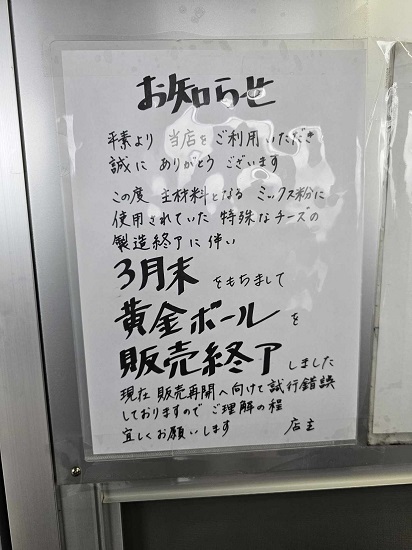 お知らせ
平素より 当店をご利用いただき
誠に ありがとう ございます
この度 主材料となる ミックス粉に
使用されていた 特殊なチーズの
製造終了に伴い
3月末をもちまして
黄金ボールを
販売終了しました
現在 販売再開へ向けて試行錯誤
しておりますので ご理解の程
宜しくお願いします 店主